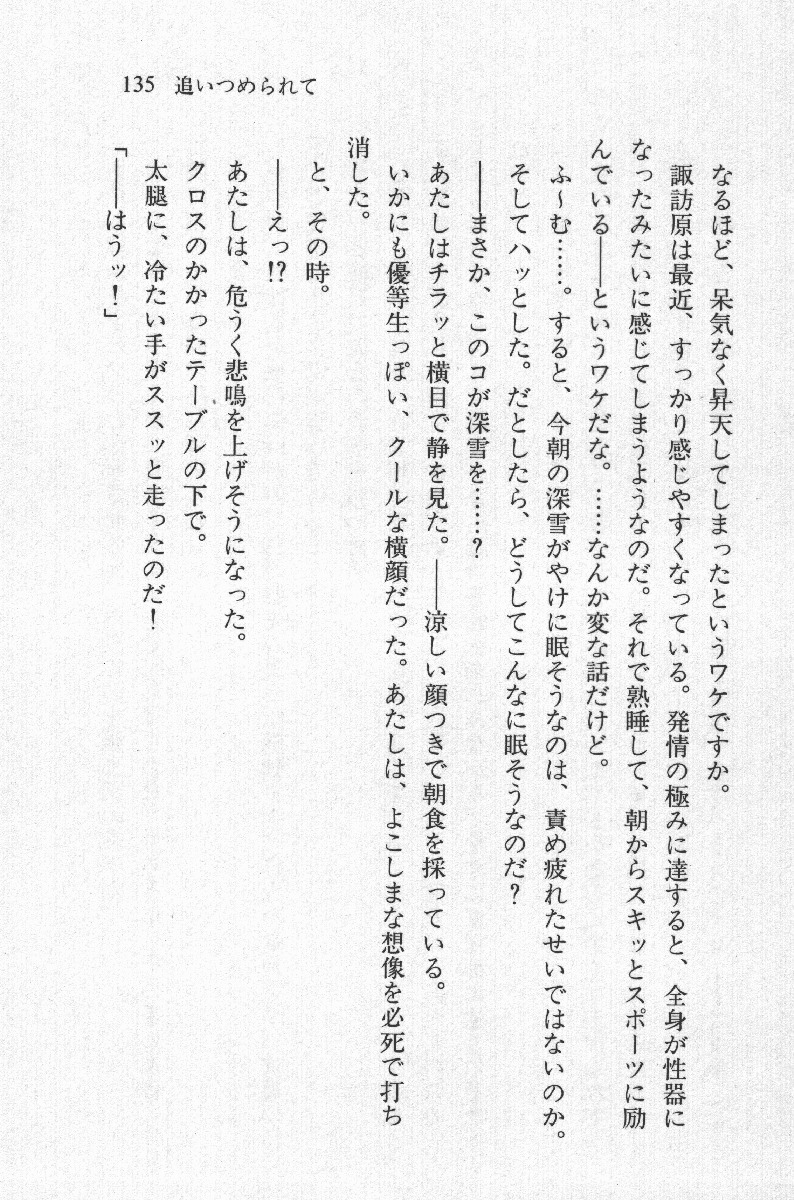 135 追いつめられて
なるほど、呆気なく昇天してしまったというワケですか。
諏訪原は最近、すっかり感じやすくなっている。発情の極みに達すると、全身が性器に
なったみたいに感じてしまうようなのだ。それで熟睡して、朝からスキッとスポーツに励
んでいる――というワケだな。……なんか変な話だけど。
ふ～む……。すると、今朝の深雪がやけに眠そうなのは、責め疲れたせいではないのか。
そしてハッとした。だとしたら、どうしてこんなに眠そうなのだ？
――まさか、このコが深雪を……？
あたしはチラッと横目で静を見た。――涼しい顔つきで朝食を採っている。
いかにも優等生っぽい、クールな横顔だった。あたしは、よこしまな想像を必死で打ち
消した。
と、その時。
――えっ!?
あたしは、危うく悲鳴を上げそうになった。
クロスのかかったテーブルの下で。
太腿に、冷たい手がススッと走ったのだ！
「――はうッ！」